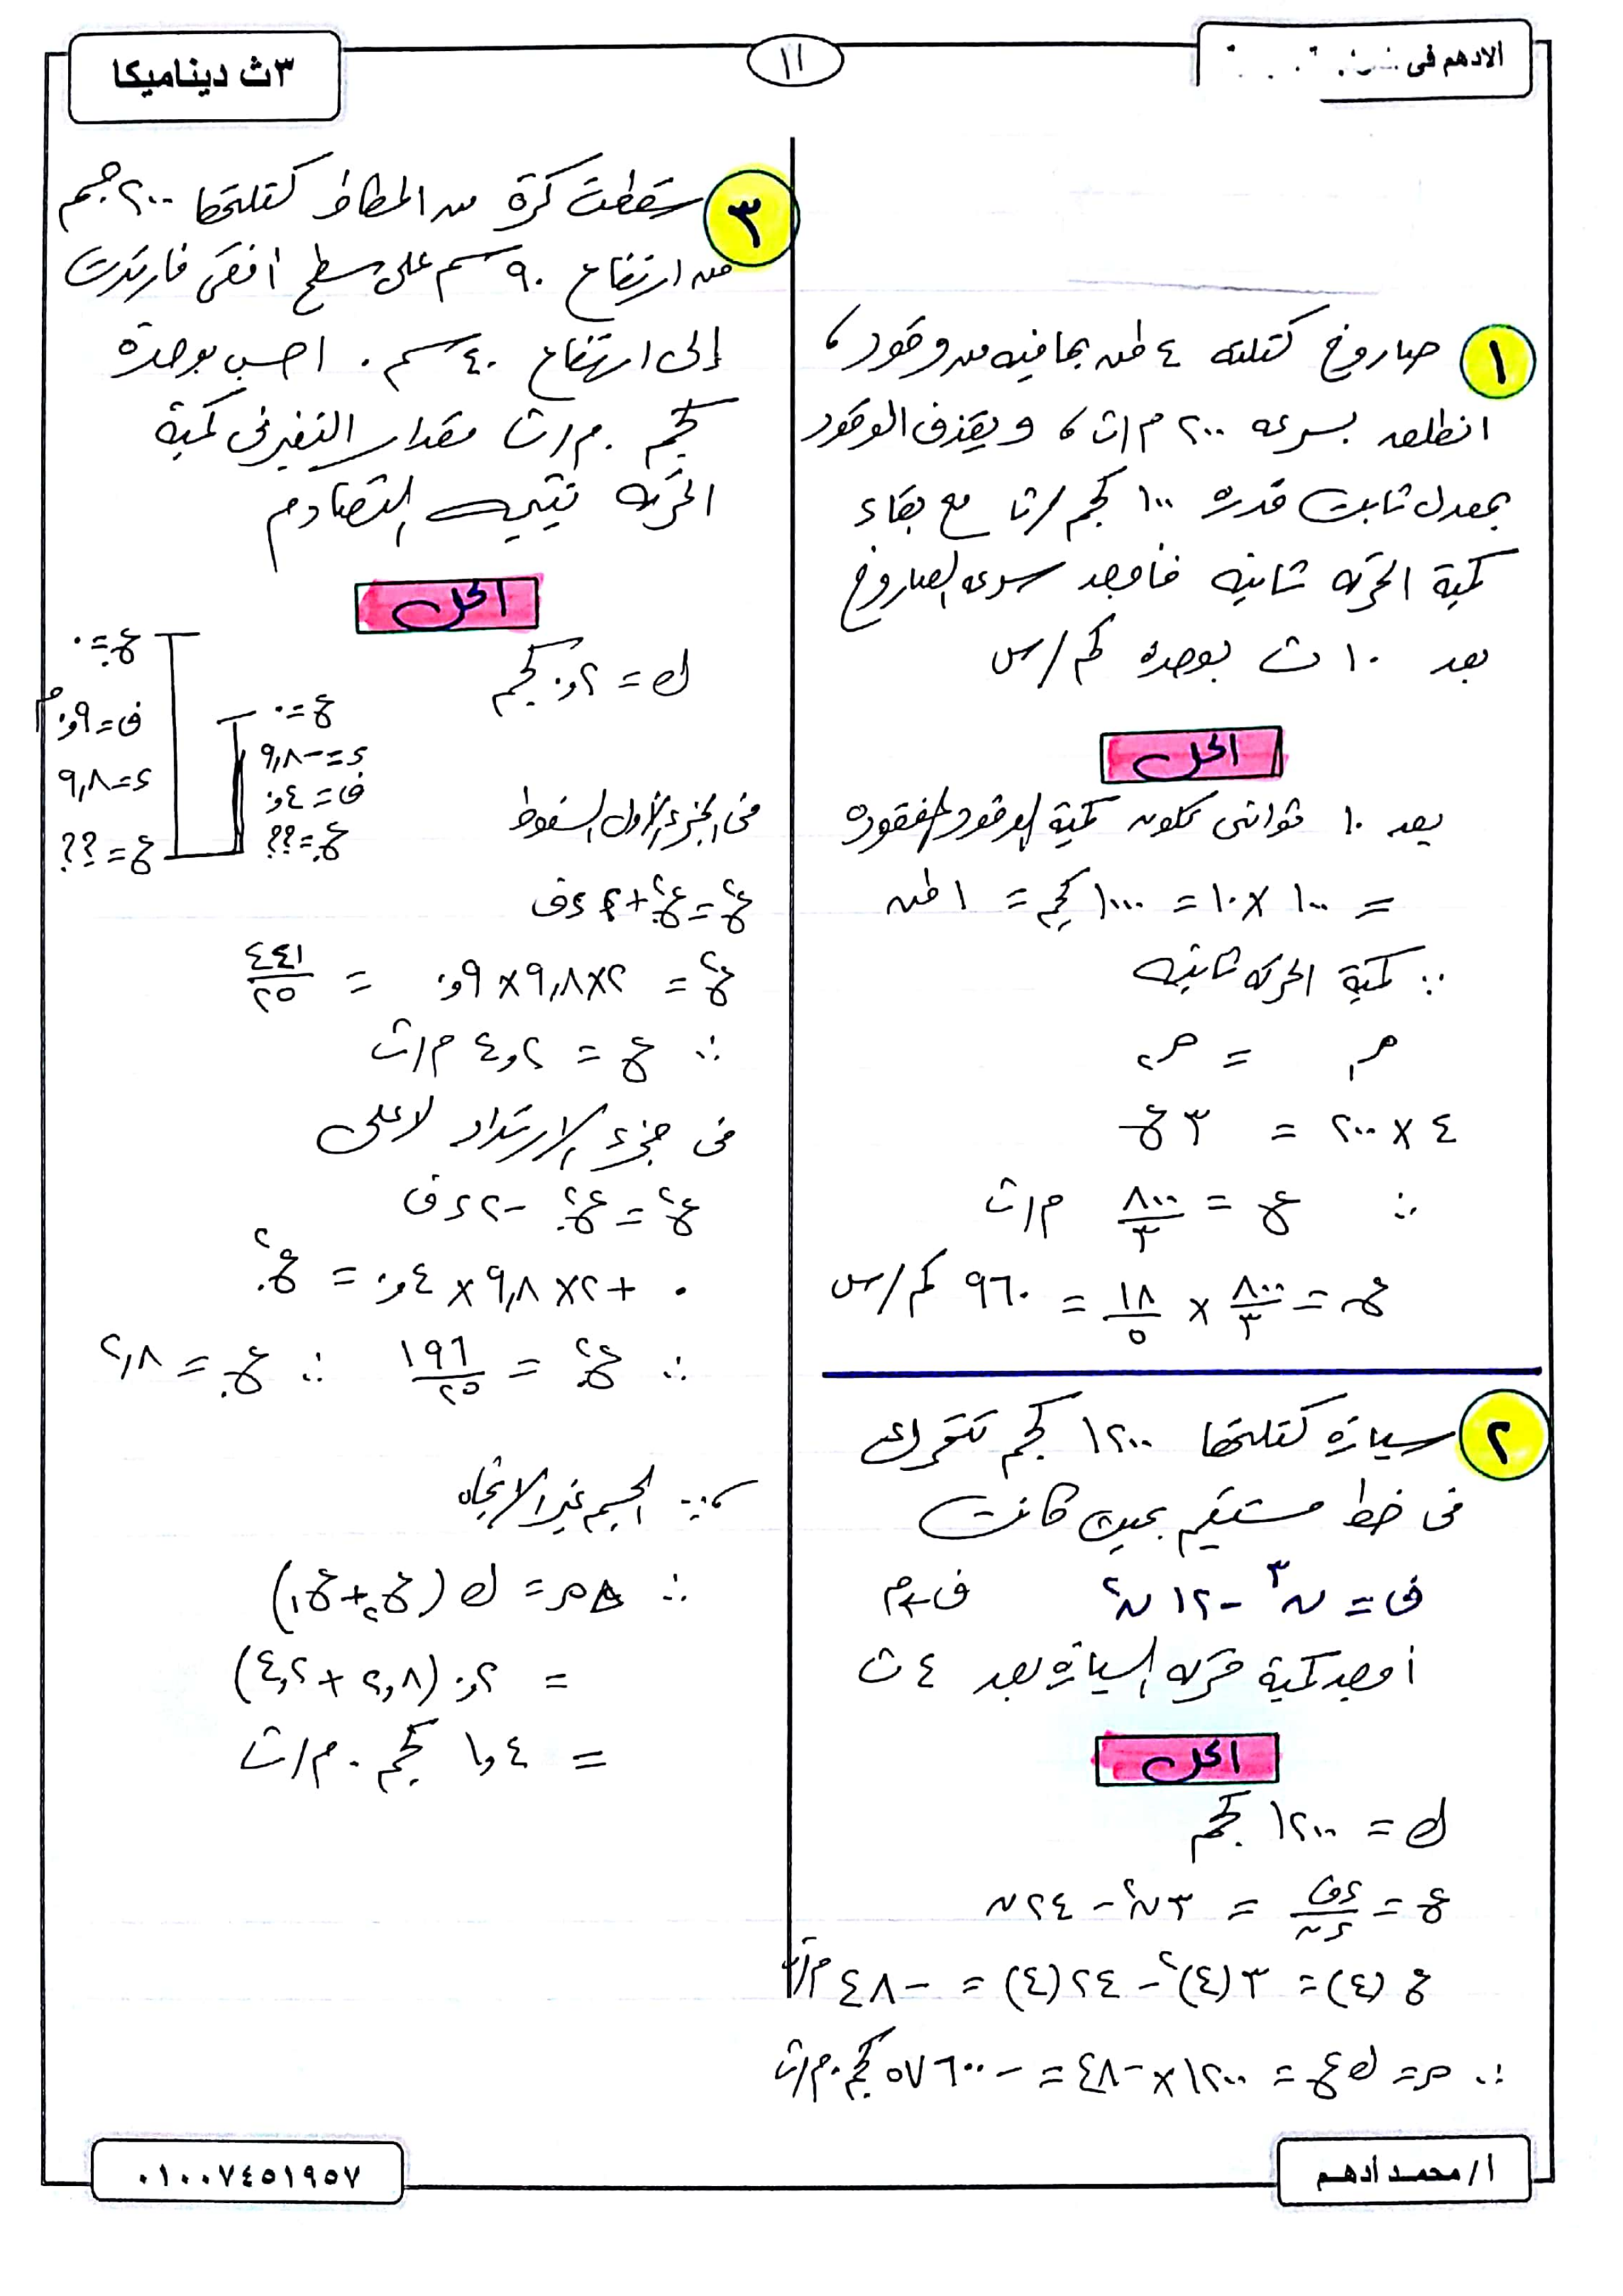 الادهم فى
١١
٣ث ديناميكا
١
صاروخ كتلته ٤ طن بما فيه من وقود ،
انطلق بسرعه ٢٠٠ م/ث ، ويقذف الوقود
بمعدل ثابت قدره ١٠٠ كجم/ث مع بقاء
كمية الحركه ثابته فأوجد سرعه الصاروخ
بعد ١٠ ث بوحده كم/س
الحل
بعد ١٠ ثوانى تكون كمية الوقود المفقوده
= ١٠٠ × ١٠ = ١٠٠٠ كجم = ١ طن
∵ كمية الحركه ثابته
م١ = م٢
٤ × ٢٠٠ = ٣ ع
∴ ع = ٨٠٠/٣ م/ث
ع = ٨٠٠/٣ × ١٨/٥ = ٩٦٠ كم/س
٢
سيارة كتلتها ١٢٠٠ كجم تتحرك
فى خط مستقيم بحيث كانت
ف = ن³ - ١٢ ن² ف ← م
أوجد كمية حركه السيارة بعد ٤ ث
الحل
ك = ١٢٠٠ كجم
ع = ءف/ءن = ٣ن² - ٢٤ن
ع(٤) = ٣(٤)² - ٢٤(٤) = -٤٨ م/ث
∴ م = ك ع = ١٢٠٠ × -٤٨ = -٥٧٦٠٠ كجم.م/ث
٣
سقطت كرة من المطاط كتلتها ٢٠٠ جم
من ارتفاع ٩٠ سم على سطح افقى فارتدت
إلى ارتفاع ٤٠ سم . احسب بوحدة
كجم . م/ث مقدار التغير فى كمية
الحركه نتيجه التصادم
الحل
ك = ٠,٢ كجم
ع. = ٠
ف = ٠,٩ م
ء = ٩,٨
ع = ؟؟
ع = ٠
ء = -٩,٨
ف = ٠,٤
ع. = ؟؟
فى الجزء الأول السقوط
ع² = ع.² + ٢ءف
ع² = ٢×٩,٨×٠,٩ = ٤٤١/٢٥
∴ ع = ٤,٢ م/ث
فى جزء الارتداد لاعلى
ع² = ع.² - ٢ءف
٠ + ٢×٩,٨×٠,٤ = ع.²
∴ ع.² = ١٩٦/٢٥ ∴ ع. = ٢,٨
∵ الجسم غير الاتجاه
∴ Δم = ك (ع٢ + ع١)
= ٠,٢ (٢,٨ + ٤,٢)
= ١,٤ كجم . م/ث
أ/ محمد أدهم
٠١٠٠٧٤٥١٩٥٧